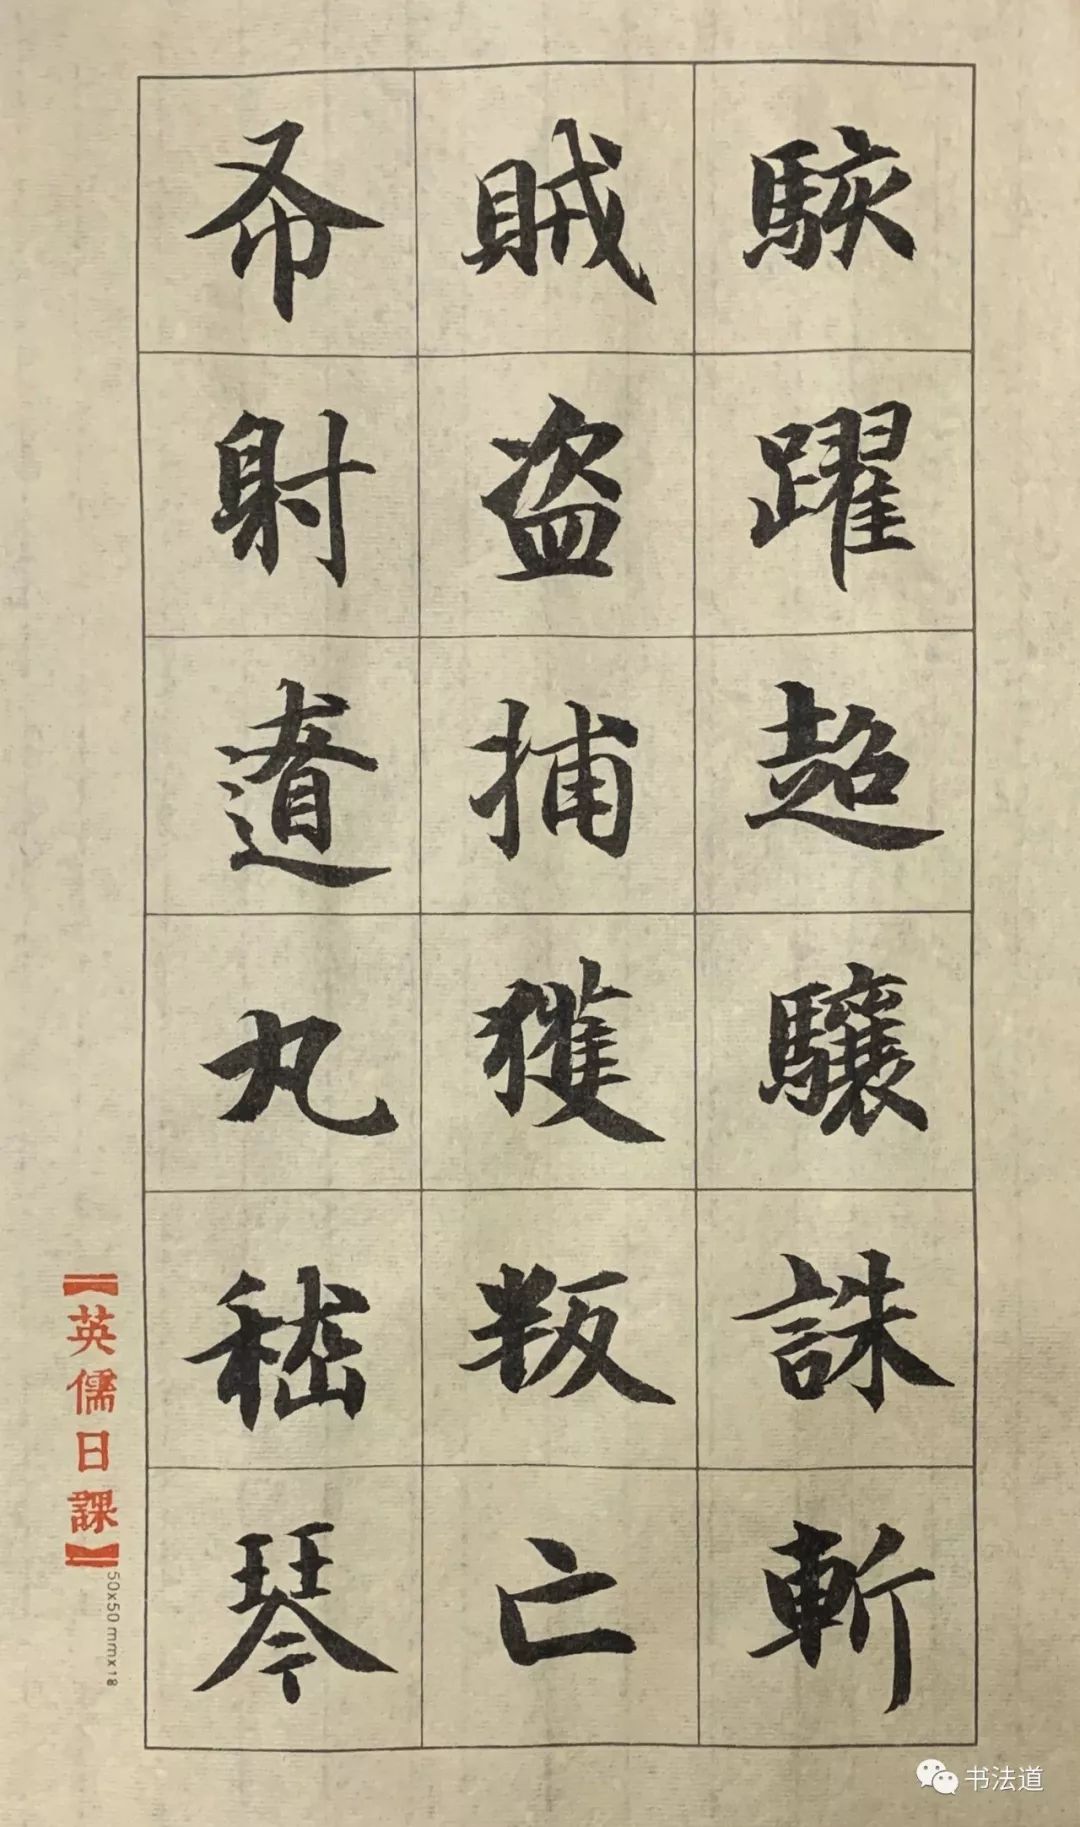 駭躍超驤誅斬
賊盗捕獲叛亡
布射遼丸嵇琴
【英儒日課】
50x50mmx18
书法道